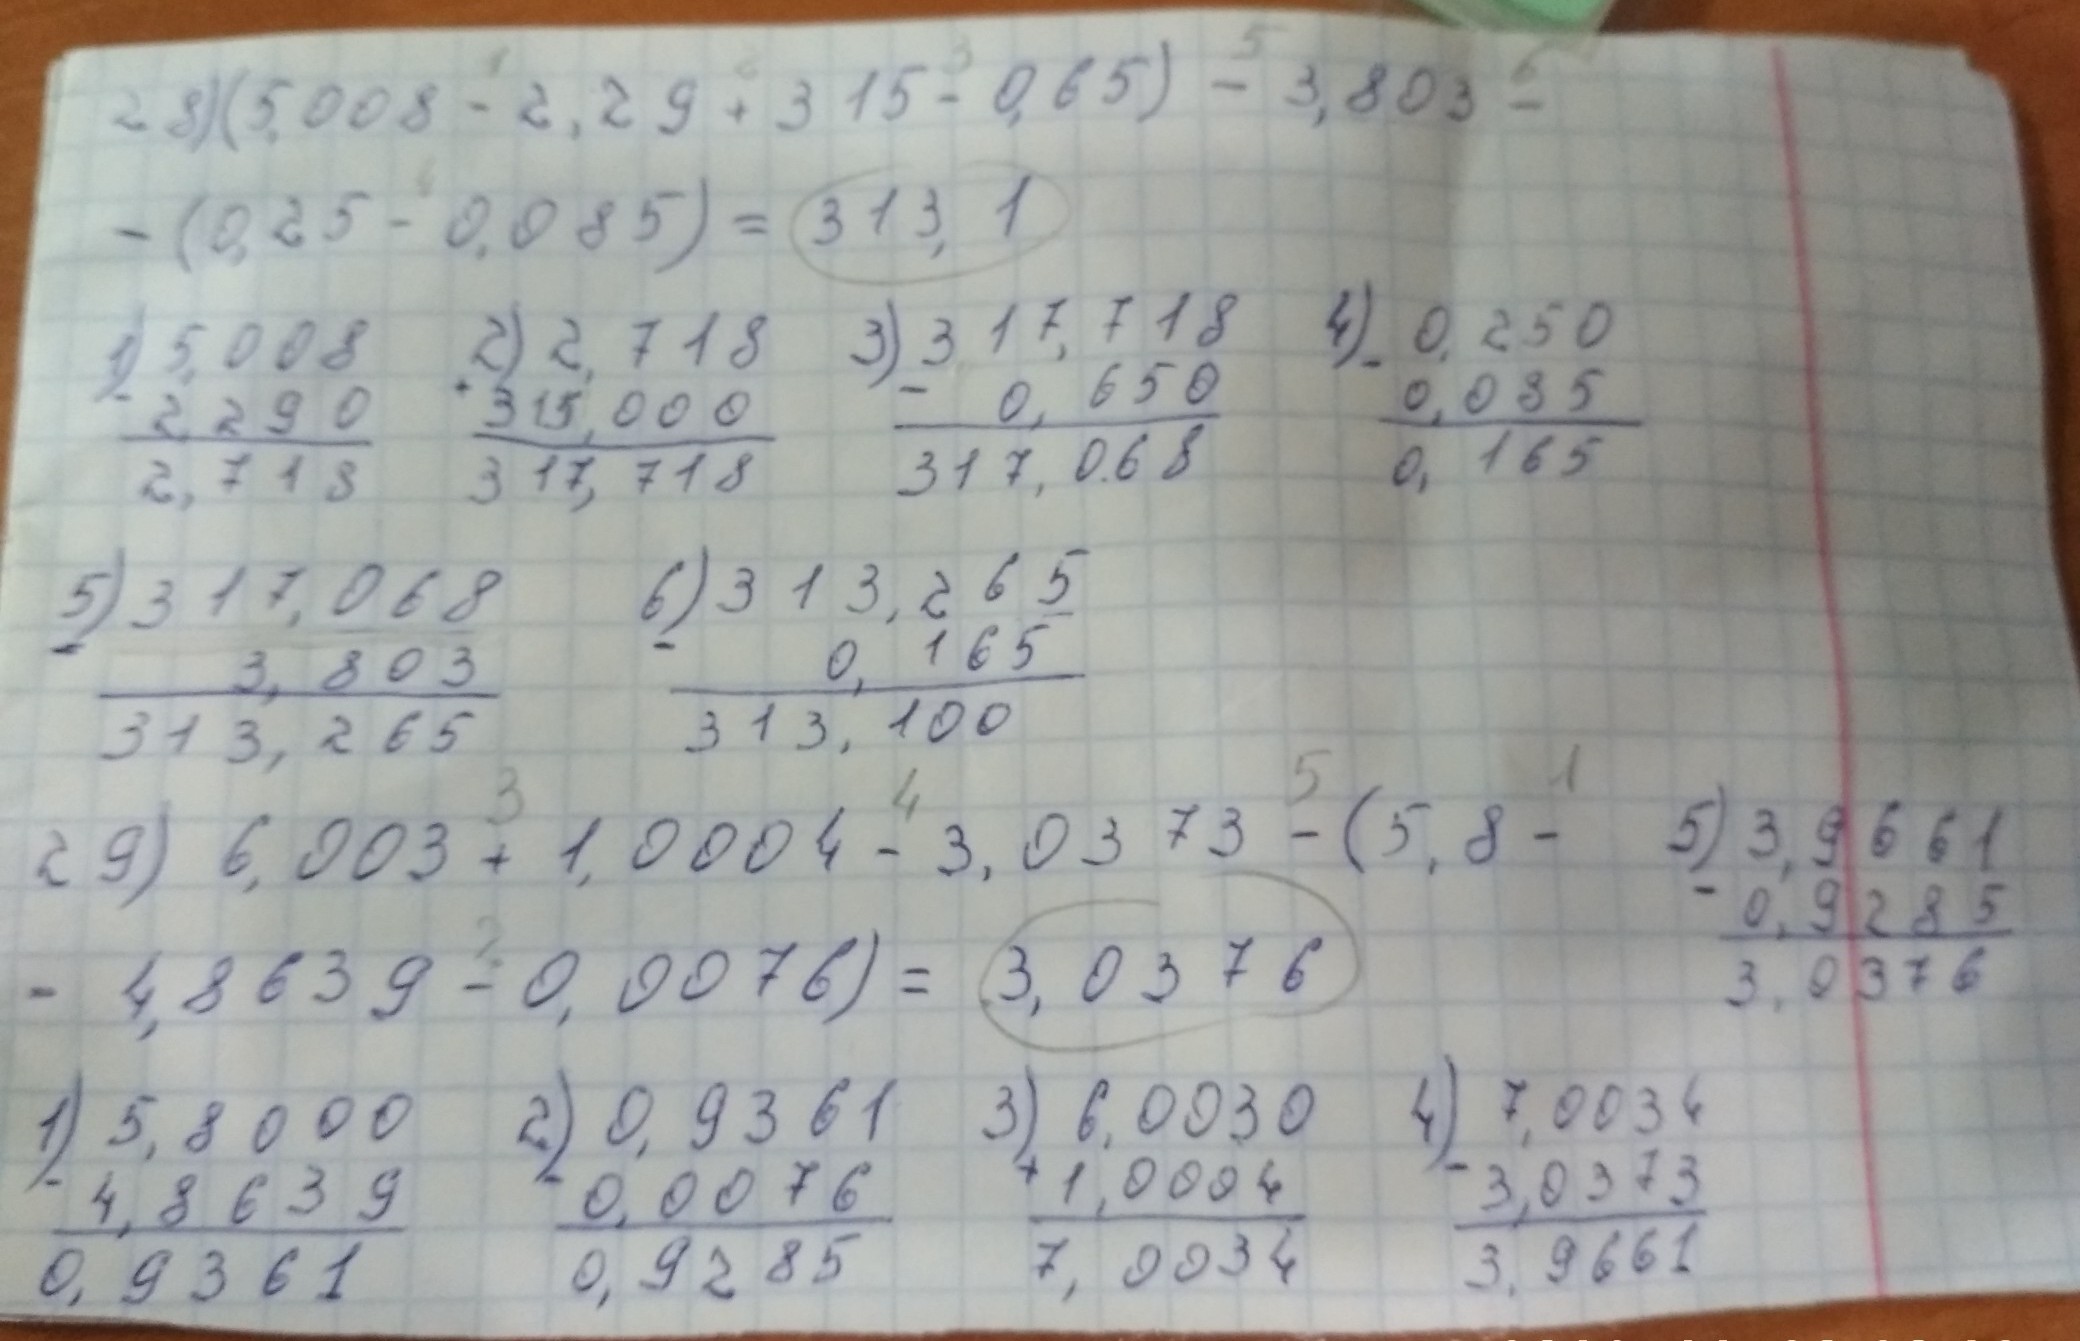 28) (5,008 - 2,29 + 315 - 0,65) - 3,803 -
1 2 3 5 6
- (0,25 - 0,085) = 313,1
4
1) 5,008 2) 2,718 3) 317,718 4) 0,250
- 2 290 + 315,000 - 0,650 - 0,085
2,718 317,718 317,068 0,165
5) 317,068 6) 313,265
- 3,803 - 0,165
313,265 313,100
3 4 5 1
29) 6,003 + 1,0004 - 3,0373 - (5,8 -
- 4,8639 - 0,0076) = 3,0376
2
5) 3,9661
- 0,9285
3,0376
1) 5,8000 2) 0,9361 3) 6,0030 4) 7,0034
- 4,8639 - 0,0076 + 1,0004 - 3,0373
0,9361 0,9285 7,0034 3,9661